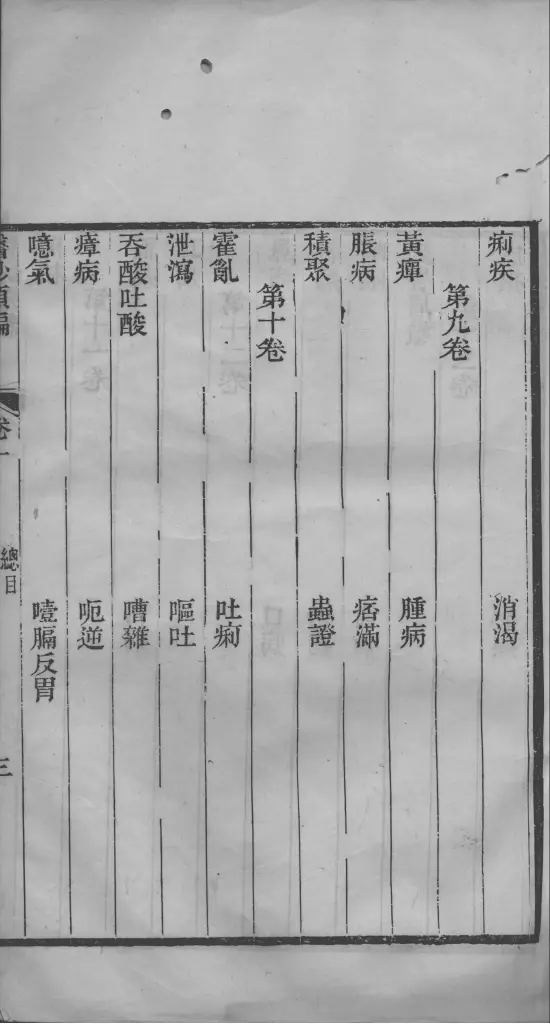 痢疾 消渴
第九卷
黃癉 腫病
脹病 痞滿
積聚 蟲證
第十卷
霍亂 吐痢
泄瀉 嘔吐
吞酸吐酸 嘈雜
瘴病 呃逆
噫氣 噎膈反胃
卷一 總目 三